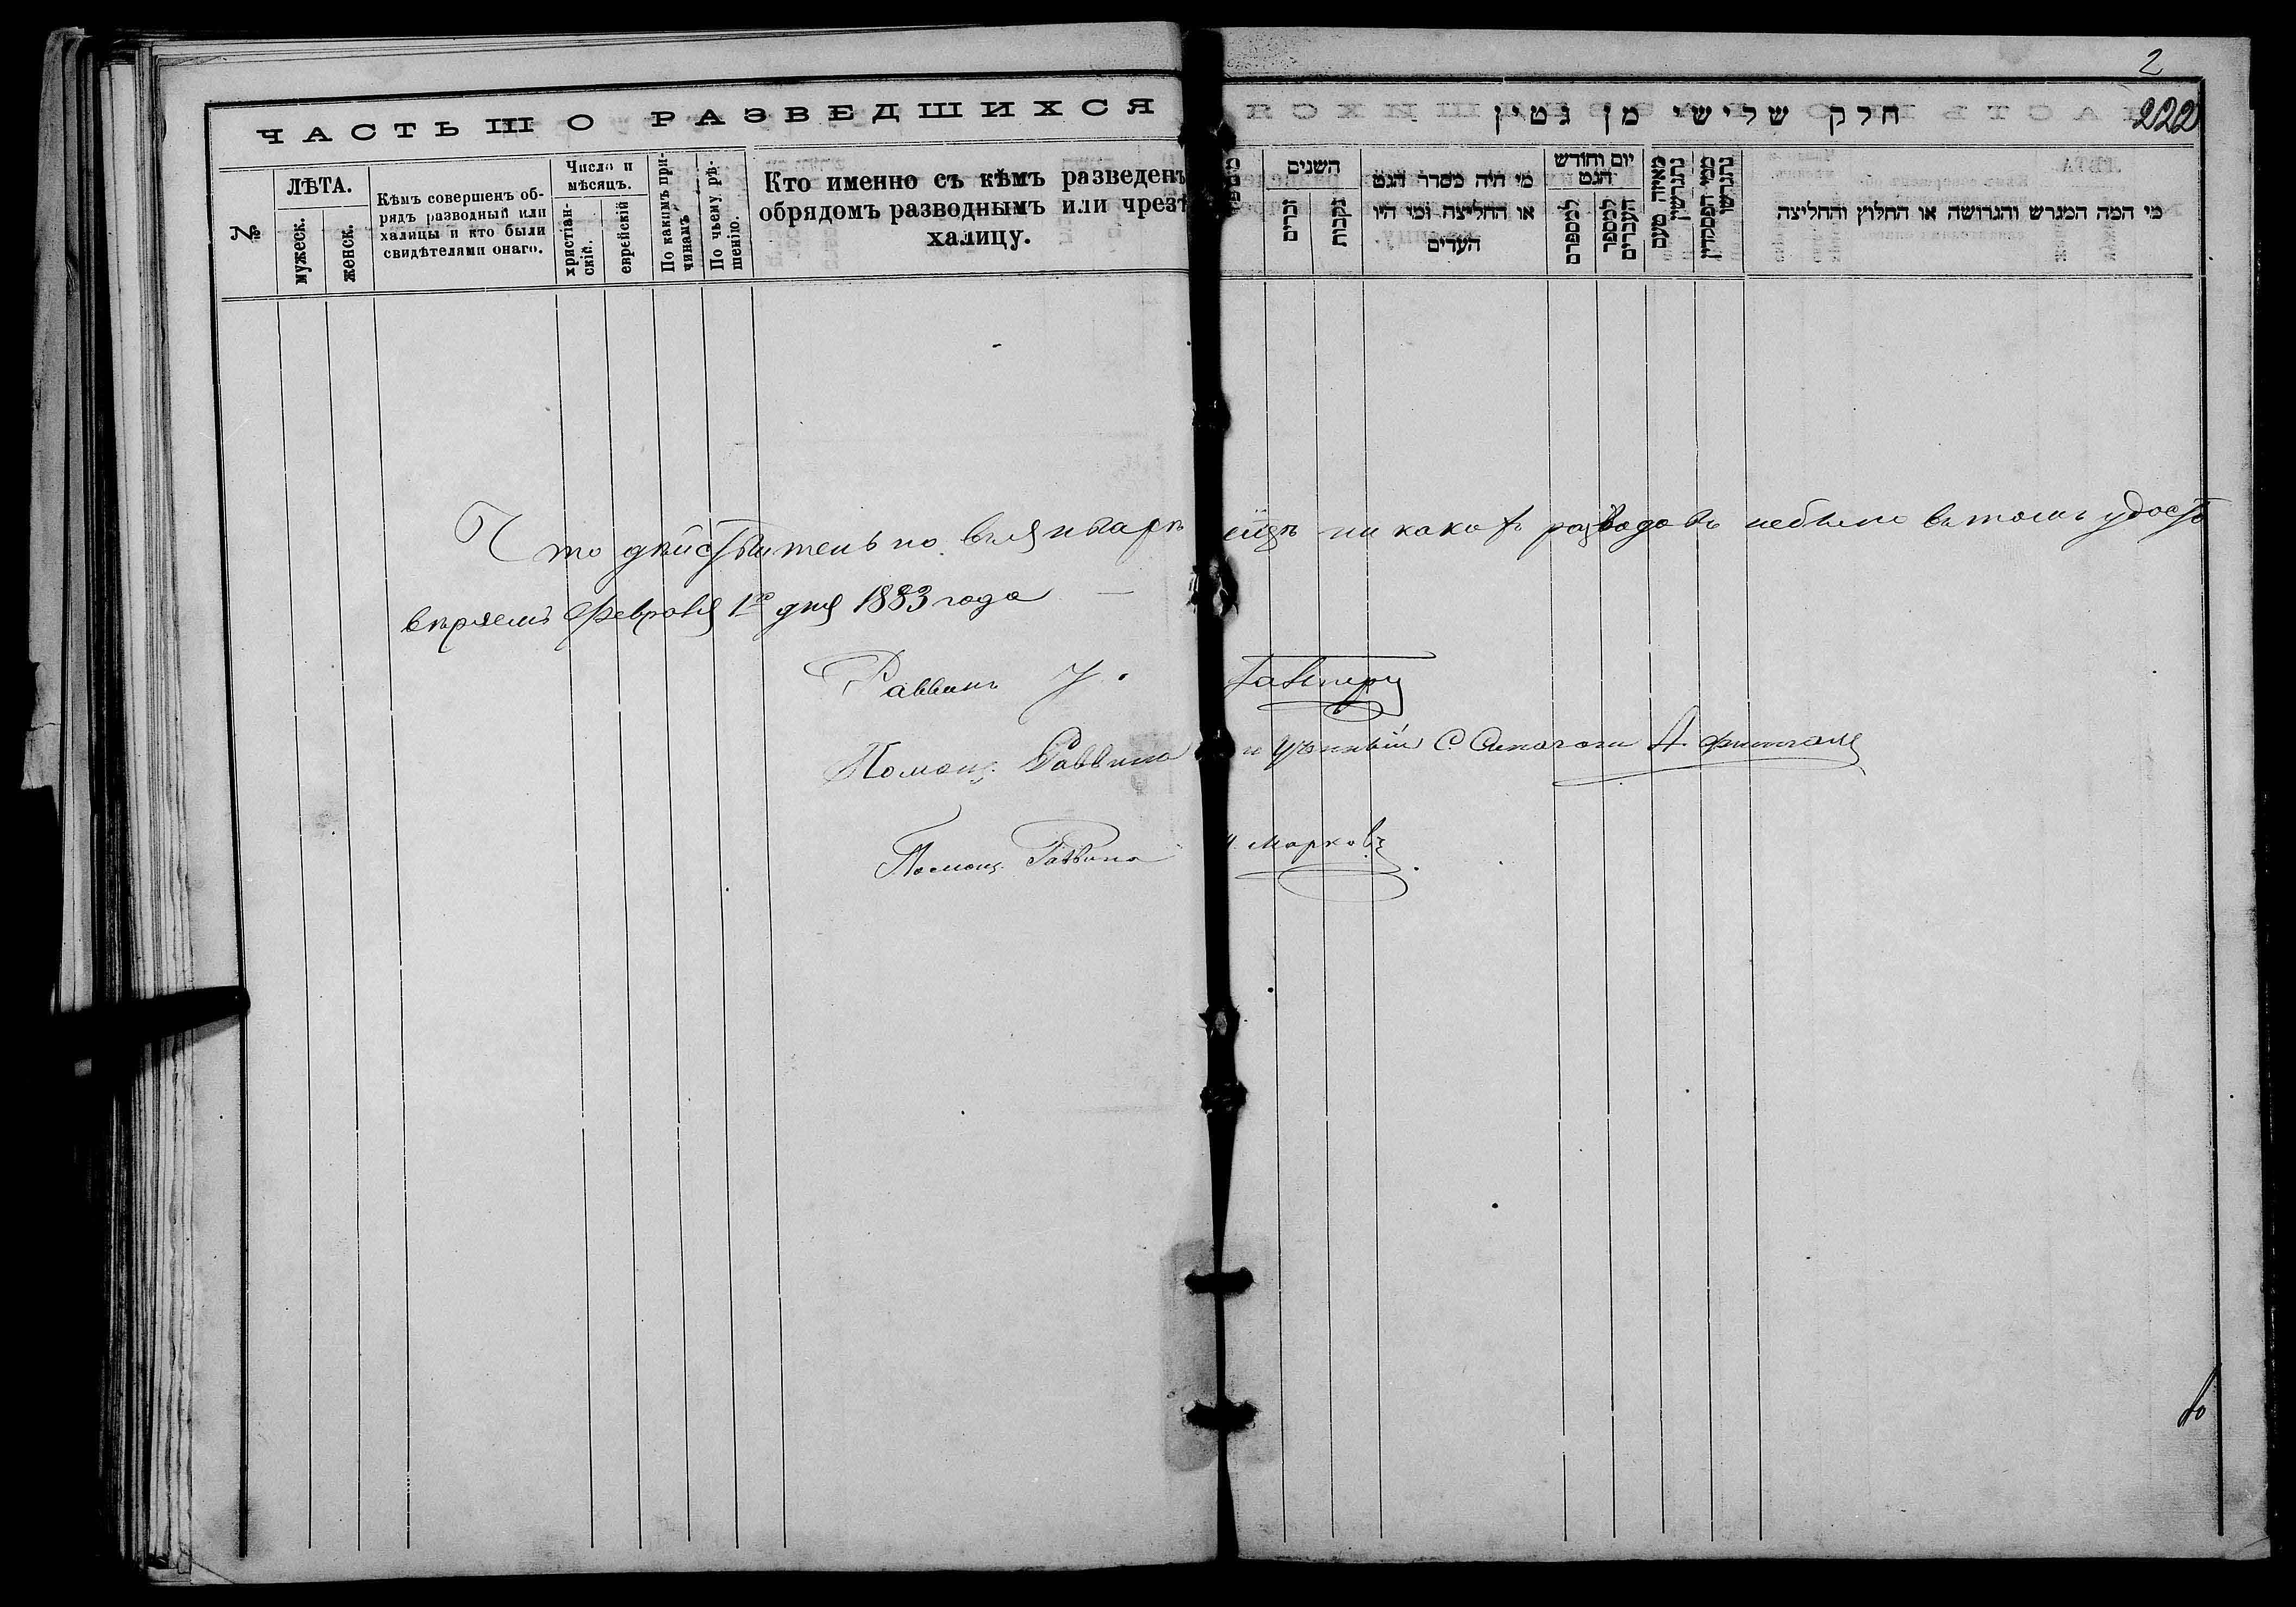 2
222
ЧАСТЬ III О РАЗВЕДШИХСЯ
חלק שלישי מן גטין
№
ЛѢТА.
мужеск.
женск.
Кѣмъ совершенъ об-
рядъ разводный или
халицы и кто были
свидѣтелями онаго.
Число и
мѣсяцъ.
христіан-
скій.
еврейскій
По какимъ при-
чинамъ
По чьему рѣ-
шенію.
Кто именно съ кѣмъ разведенъ
обрядомъ разводнымъ или чрезъ
халицу.
השנים
זכרים
נקבות
מי היה מסדר הגט
או החליצה ומי היו
העדים
יום וחודש
הגט
למספרם
למספר
העברים
מאיזה טעם
נתגרשו
ממי הפסק דין
נתגרשו
מי המה המגרש והגרושה או החלוץ והחליצה
Что дѣйствительно въ Январѣ м͠цѣ ни какохъ разводовъ небыло въ томъ удосто
вѣряемъ Февраля 1го дня 1883 года —
Раввинъ
Помощ. Раввина и Ученый С Синагоги А.
Помощ. Раввина Марковъ